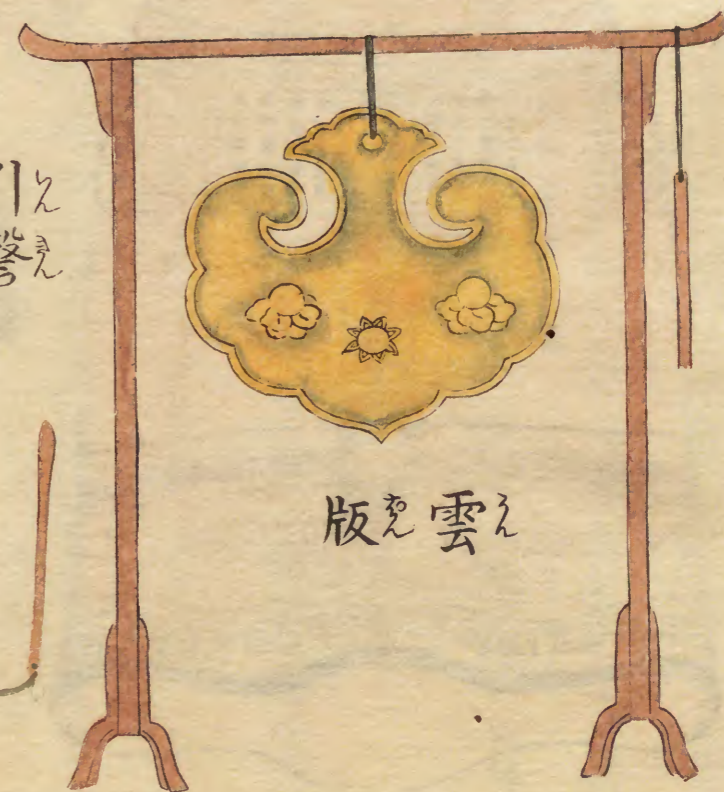 雲版
うんはん
引磬
いんきん